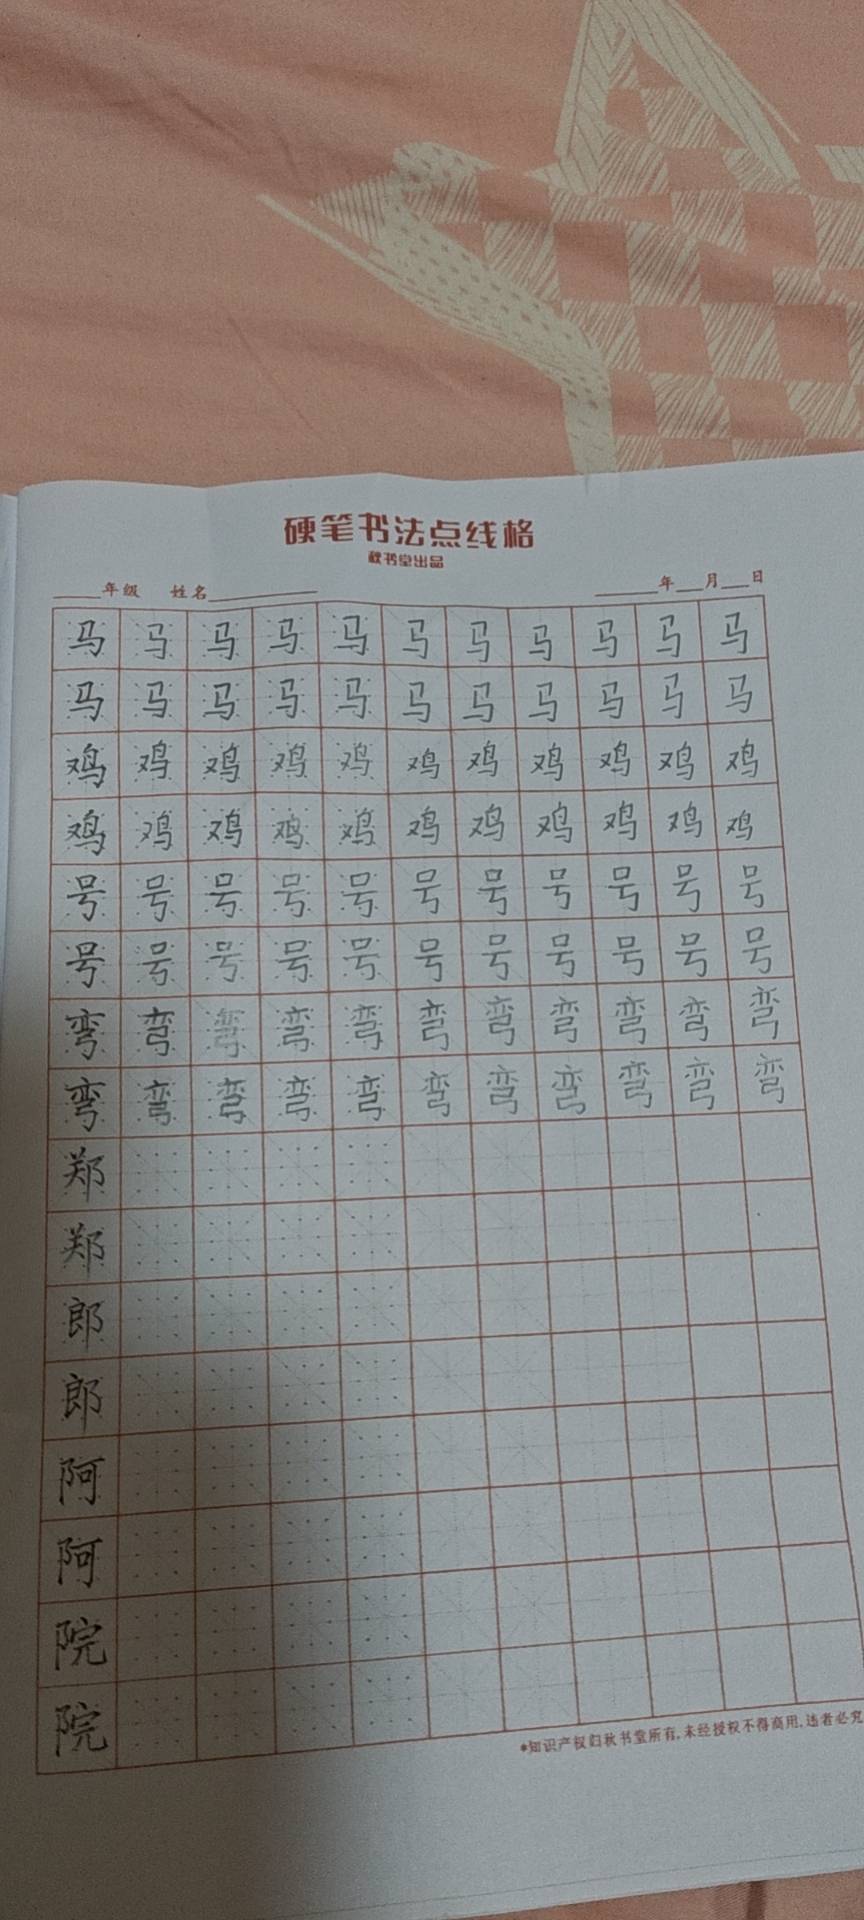 硬笔书法点线格
秋书堂出品
年级 姓名 年 月 日
马 马 马 马 马 马 马 马 马 马 马
马 马 马 马 马 马 马 马 马 马 马
鸡 鸡 鸡 鸡 鸡 鸡 鸡 鸡 鸡 鸡 鸡
鸡 鸡 鸡 鸡 鸡 鸡 鸡 鸡 鸡 鸡 鸡
号 号 号 号 号 号 号 号 号 号 号
号 号 号 号 号 号 号 号 号 号 号
弯 弯 弯 弯 弯 弯 弯 弯 弯 弯 弯
弯 弯 弯 弯 弯 弯 弯 弯 弯 弯 弯
郑
郑
郎
郎
阿
阿
院
院
*知识产权归秋书堂所有,未经授权不得商用,违者必究